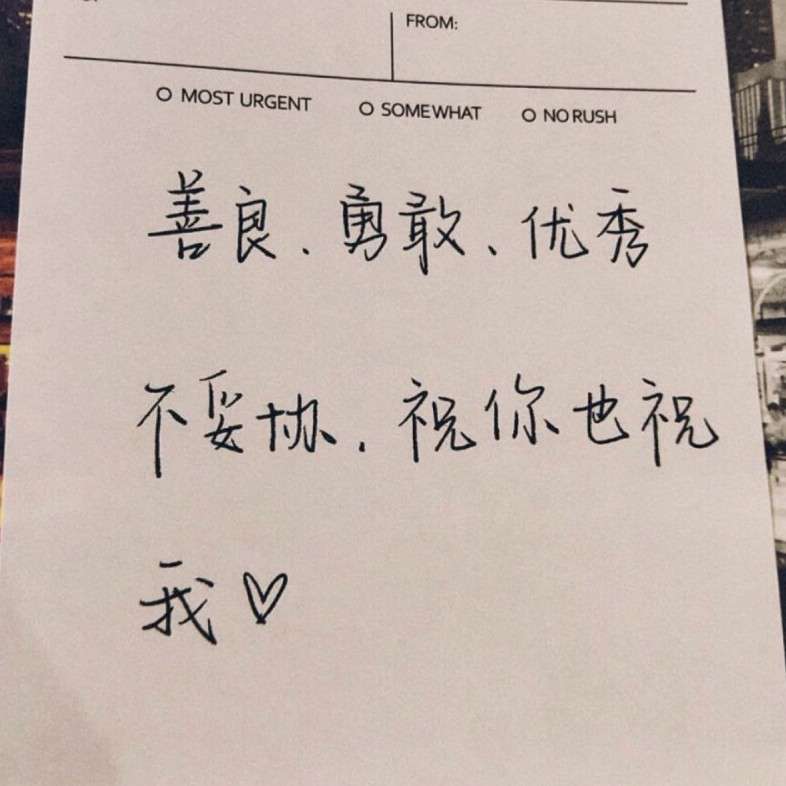 FROM:
O MOST URGENT O SOMEWHAT O NO RUSH
善良、勇敢、优秀
不妥协，祝你也祝
我♡